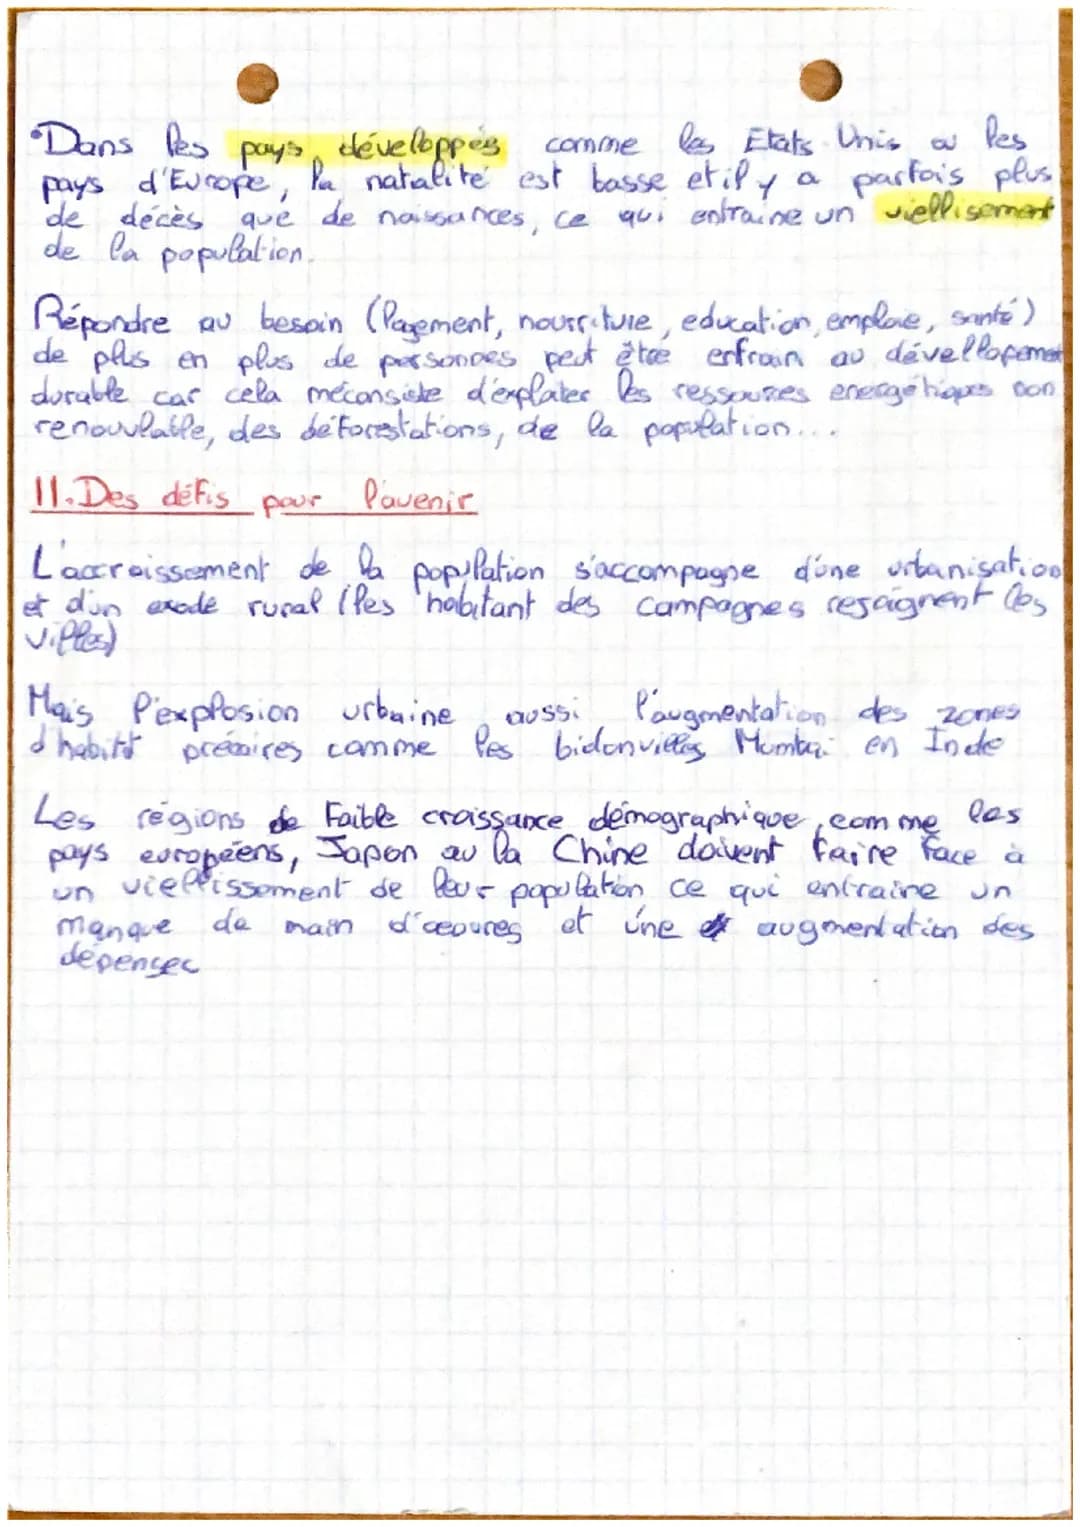 •Dans les pays développés comme les Etats Unis ou les
pays d'Europe, la natalité est basse et il y a parfois plus
de décès que de naissances, ce qui entraine un viellisement
de la population.
Répondre au besoin (logement, nourriture, education, emploie, santé)
de plus en plus de personnes peut être enfrain au dévellopement
durable car cela mécansiste d'exploiter les ressources energétiques non
renouvlable, des déforestations, de la population...
II. Des défis pour l'avenir
L'accroissement de la population s'accompagne d'une urbanisation
et d'un exode rural (les habitant des campagnes rejoignent les
villes)
Mais l'explosion urbaine aussi l'augmentation des zones
d'habitat précaires comme les bidonvilles Mumbai en Inde
Les régions de Faible croissance démographique, comme les
pays européens, Japon ou la Chine doivent faire face à
un viellissement de leur population ce qui entraine un
manque de main d'oeuvres et une augmentation des
dépenses